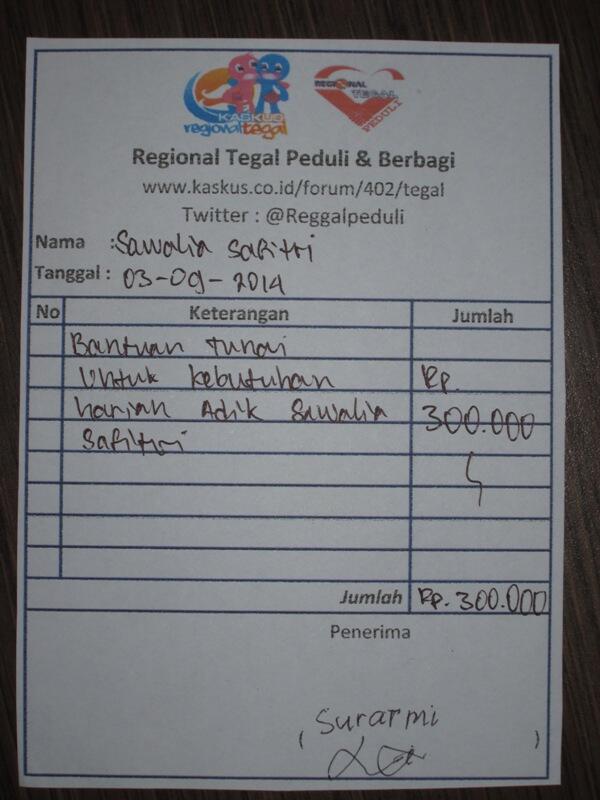 KASKUS
regionaltegal
REGIONAL
TEGAL
PEDULI
Regional Tegal Peduli & Berbagi
www.kaskus.co.id/forum/402/tegal
Twitter : @Reggalpeduli
Nama : Sawalia Safitri
Tanggal : 03-09-2014
No Keterangan Jumlah
Bantuan Tunai
Untuk kebutuhan Rp.
harian Adik Sawalia 300.000
Safitri
Jumlah Rp. 300.000
Penerima
( Surarmi )